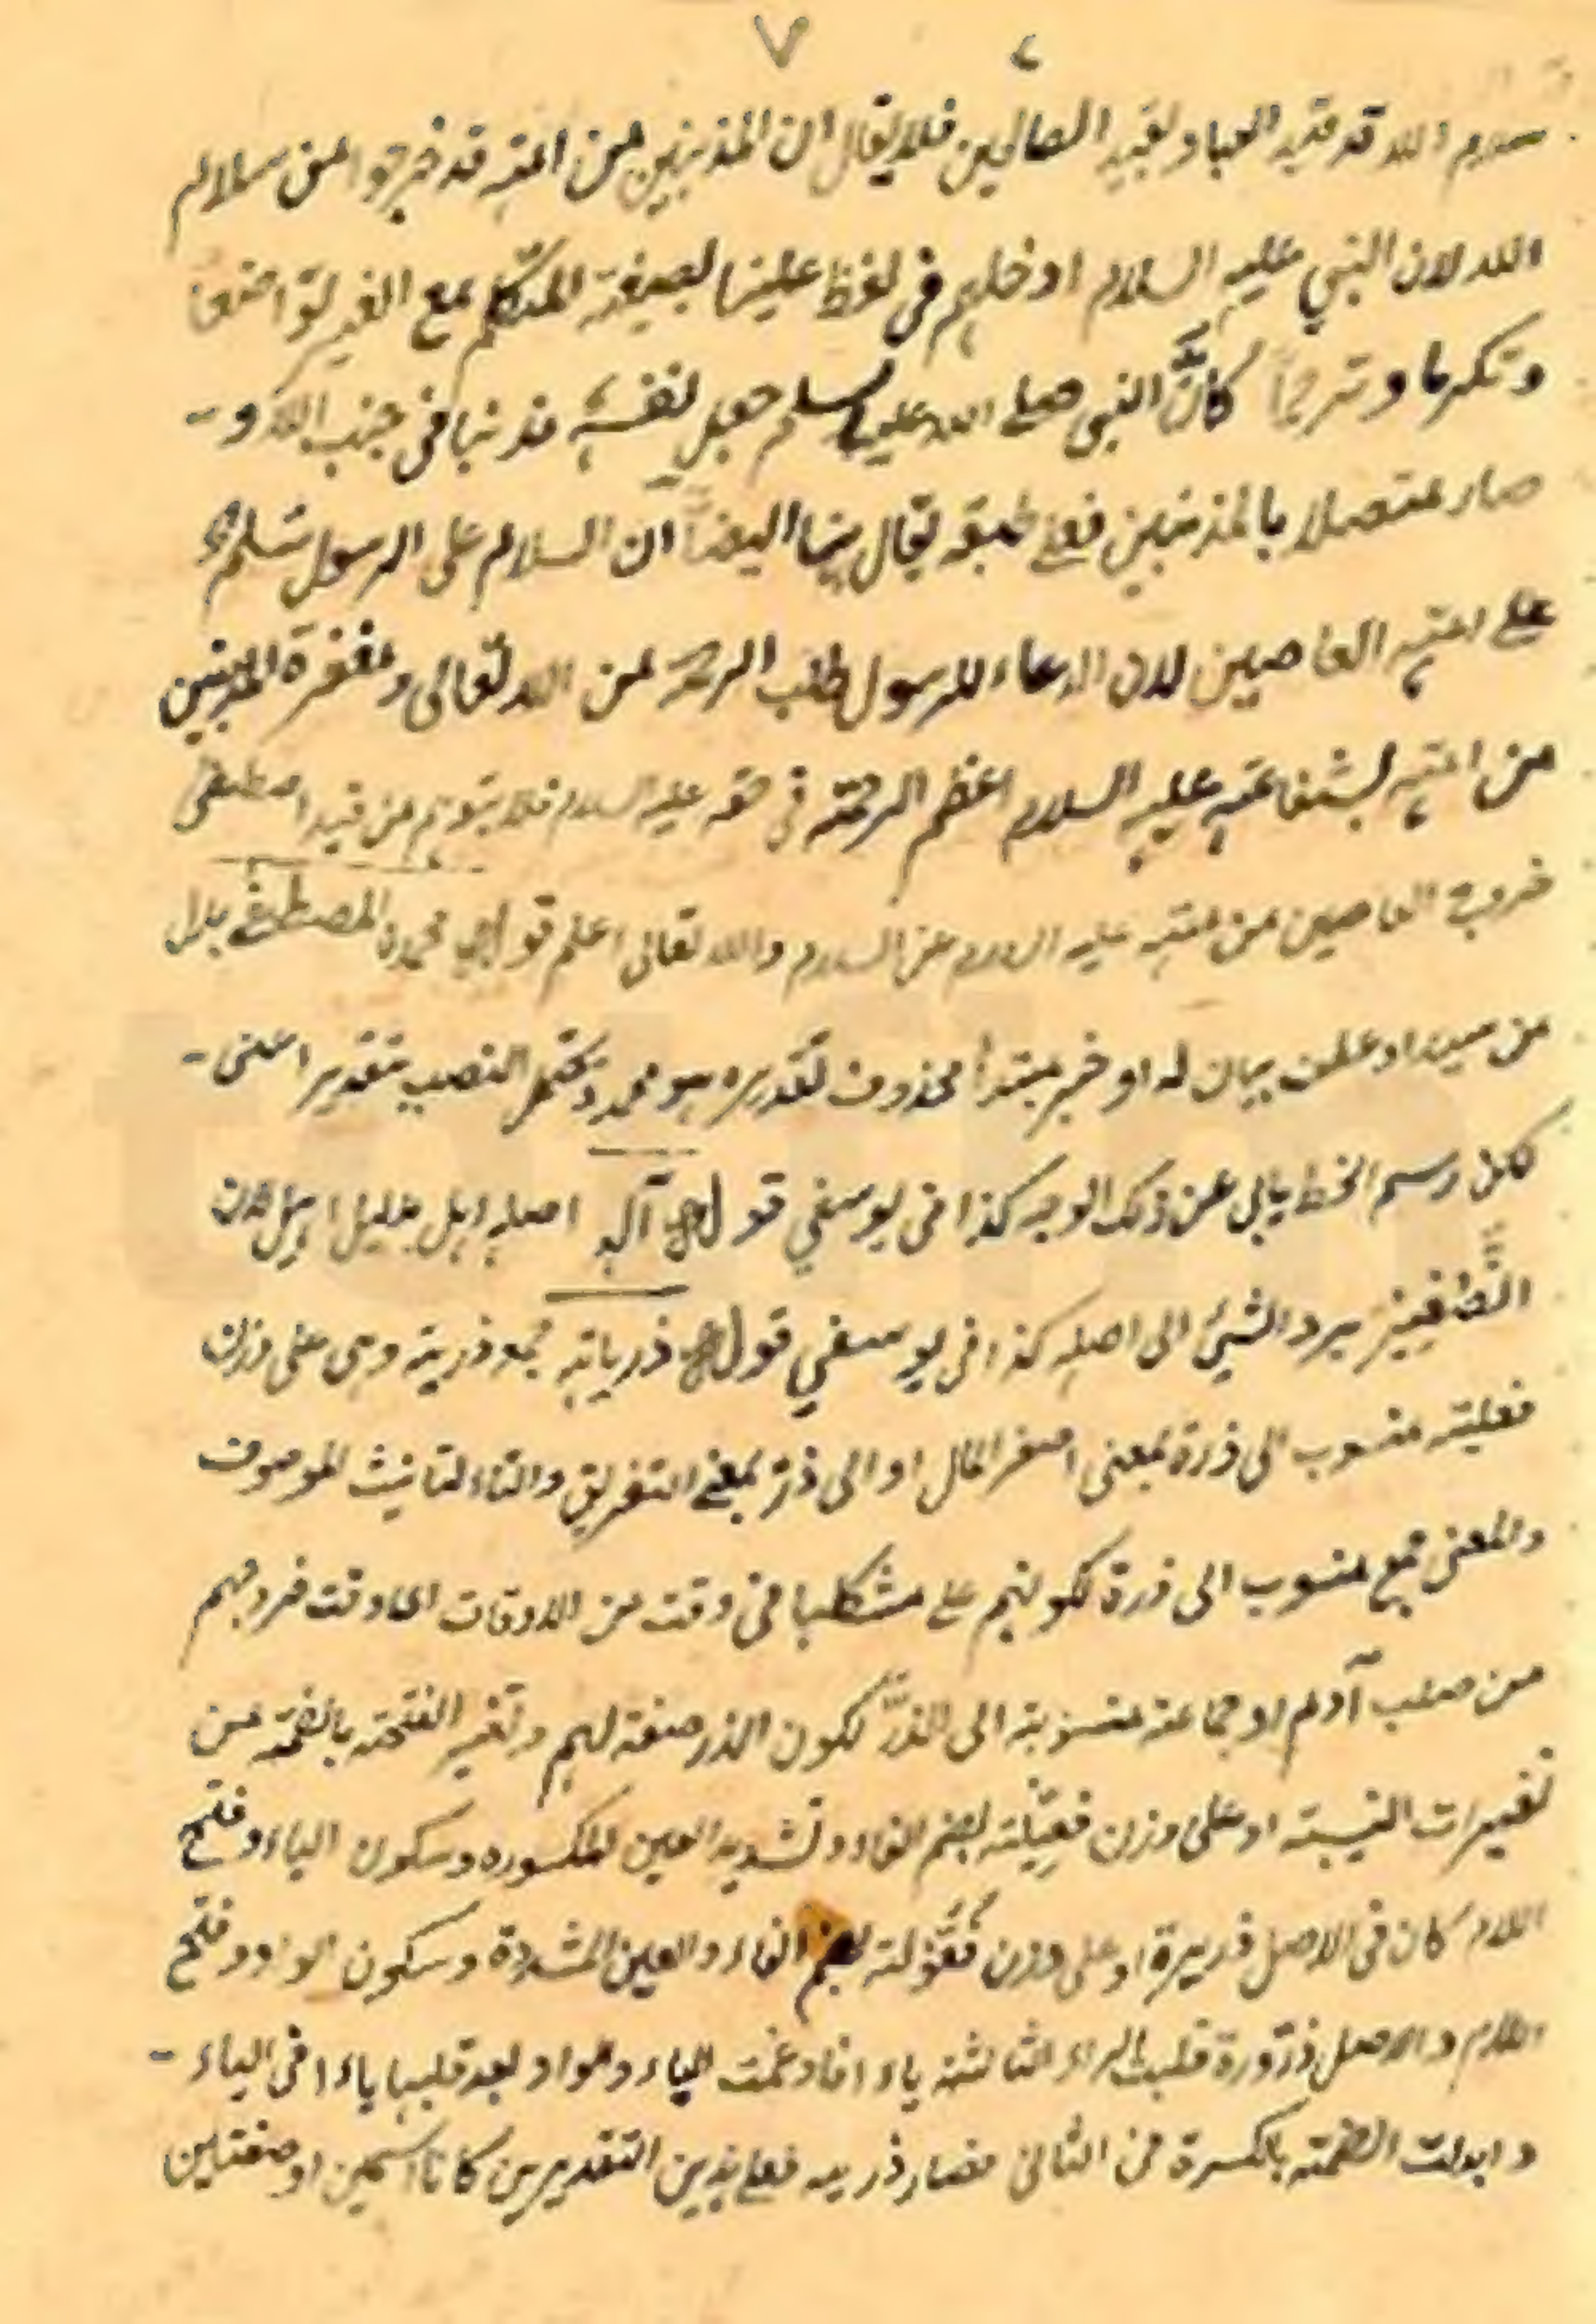 ٧
سلام الله قد قيد العباد بقيد الصالحين فلا يقال ان المذنبين من امته قد خرجوا من سلام
الله لان النبي عليه السلام ادخلهم فى لفظ علينا بصيغة المتكلم مع الغير تواضعا
وتكرما وترحما كانّ النبى صلى الله عليه وسلم جعل نفسه مذنبا فى جنب الله و
صار متصلا بالمذنبين فعلى يقال ايضا ان السلام على الرسول
على امته العاصين لان الدعاء للرسول طلب الرحمة من الله تعالى ومغفرة المذنبين
من امته بشفاعته عليه السلام اعظم الرحمة فى حقه عليه السلام فلا يتوهم من قيد اصطفى
خروج العاصين من امته عليه السلام عن السلام والله تعالى اعلم قوله محمدن المصطفى بدل
من سيد او عطف بيان له او خبر مبتدأ محذوف تقديره هو محمد ويحتمل النصب بتقدير اعنى
لكن رسم الخط يابى عن ذلك الوجه كذا فى يوسفي قوله آله اصله اهل بدليل اهيل لان
التصغير يرد الشيئ الى اصله كذا فى يوسفي قوله ذرياته جمع ذرية وهى على وزن
فعلية منسوب الى ذرة بمعنى اصغر النمل او الى ذرّ بمعنى التفريق والتاء لتانيث الموصوف
والمعنى جمع منسوب الى ذرة لكونهم على مشكلها فى وقت من الاوقات اى وقت خروجهم
من صلب آدم او جماعة منسوبة الى الذرّ لكون الذر صفة لهم وتغير الفتحة بالضمة من
تغييرات النسبة او على وزن فعّيلة بضم الفاء وتشديد العين المكسوره وسكون الياء وفتح
اللام كان فى الاصل ذريرة او على وزن فُعُّولة بضم الفاء والعين المشددة وسكون الواو وفتح
اللام والاصل ذرّورة قلبت الراء الثالثة ياء فادغمت الياء والواو بعد قلبها ياء فى الياء
وابدلت الضمة بالكسرة فى الثانى فصار ذريه فعلى هذين التقديرين كانا اسمين او صفتين